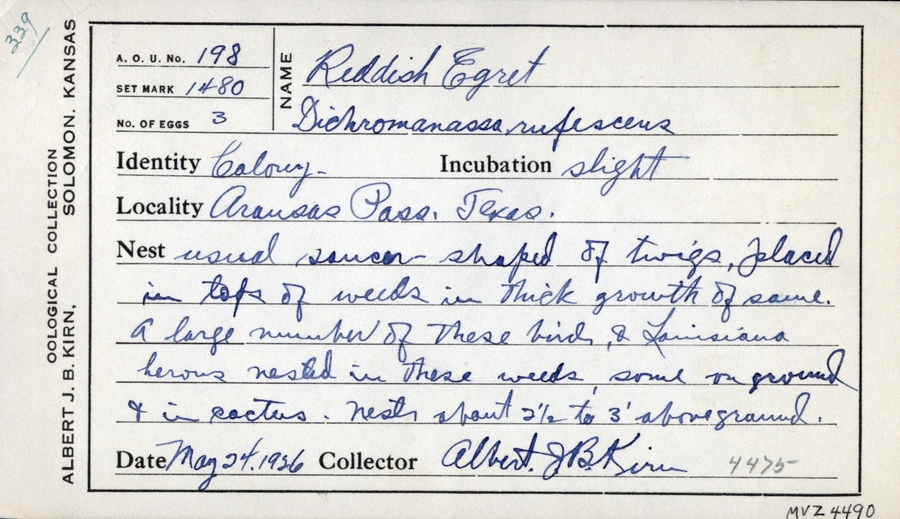 339
OOLOGICAL COLLECTION
ALBERT J. B. KIRN, SOLOMON, KANSAS
A. O. U. No. 198
SET MARK 1480
No. OF EGGS 3
NAME Reddish Egret
Dichromanassa rufescens
Identity Colony- Incubation slight
Locality Aransas Pass. Texas.
Nest usual saucer-shaped of twigs, placed
in tops of weeds in thick growth of same.
A large number of these birds, & Louisiana
herons nested in these weeds, some on ground
& in cactus. Nests about 2½ to 3' above ground.
Date May 24, 1926 Collector Albert J B Kirn 4475
MVZ 4490